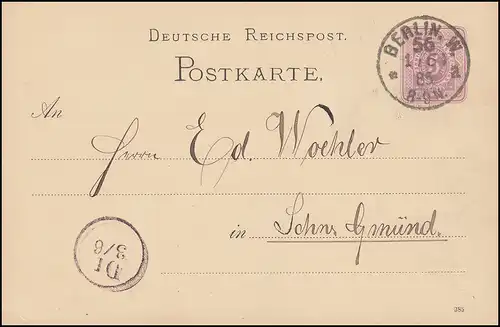 DEUTSCHE REICHSPOST.
POSTKARTE.
BERLIN. W.
56
1/6
85
8-9N.
* a
An
Herrn Ed. Woehler
in Schw. Gmünd.
D1
3/6
285